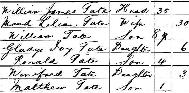 William James Tate Head 35
Maud Lilian Tate Wife 30
William Tate Son 8
Gladys Ivy Tate Daughter 6
Ronald Tate Son 4
Winifred Tate Daughter 3
Matthew Tate Son 1